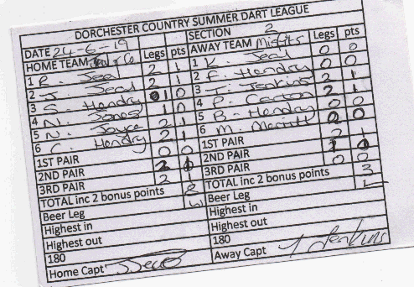 DORCHESTER COUNTRY SUMMER DART LEAGUE
DATE 24-6-19 SECTION 2
HOME TEAM Legs pts AWAY TEAM Misfits Legs pts
1 P. Seal 2 1 1 K. Seal 0 0
2 J. Seal 2 1 2 F. Hendry 0 0
3 S. Hendry 0 3 T. Jenkins 2 1
4 N. Jones 1 0 4 P. Caxton 2 1
5 N. Joyce 2 1 5 B. Hendry 0 0
6 C. Hendry 2 1 6 M. Merritt 0 0
1ST PAIR 0 0 1ST PAIR 2 1
2ND PAIR 2 2ND PAIR 0
3RD PAIR 2 1 3RD PAIR 0 0
TOTAL inc 2 bonus points TOTAL inc 2 bonus points 3
Beer Leg W Beer Leg L
Highest in Highest in
Highest out Highest out
180 180
Home Capt J Seal Away Capt T Jenkins